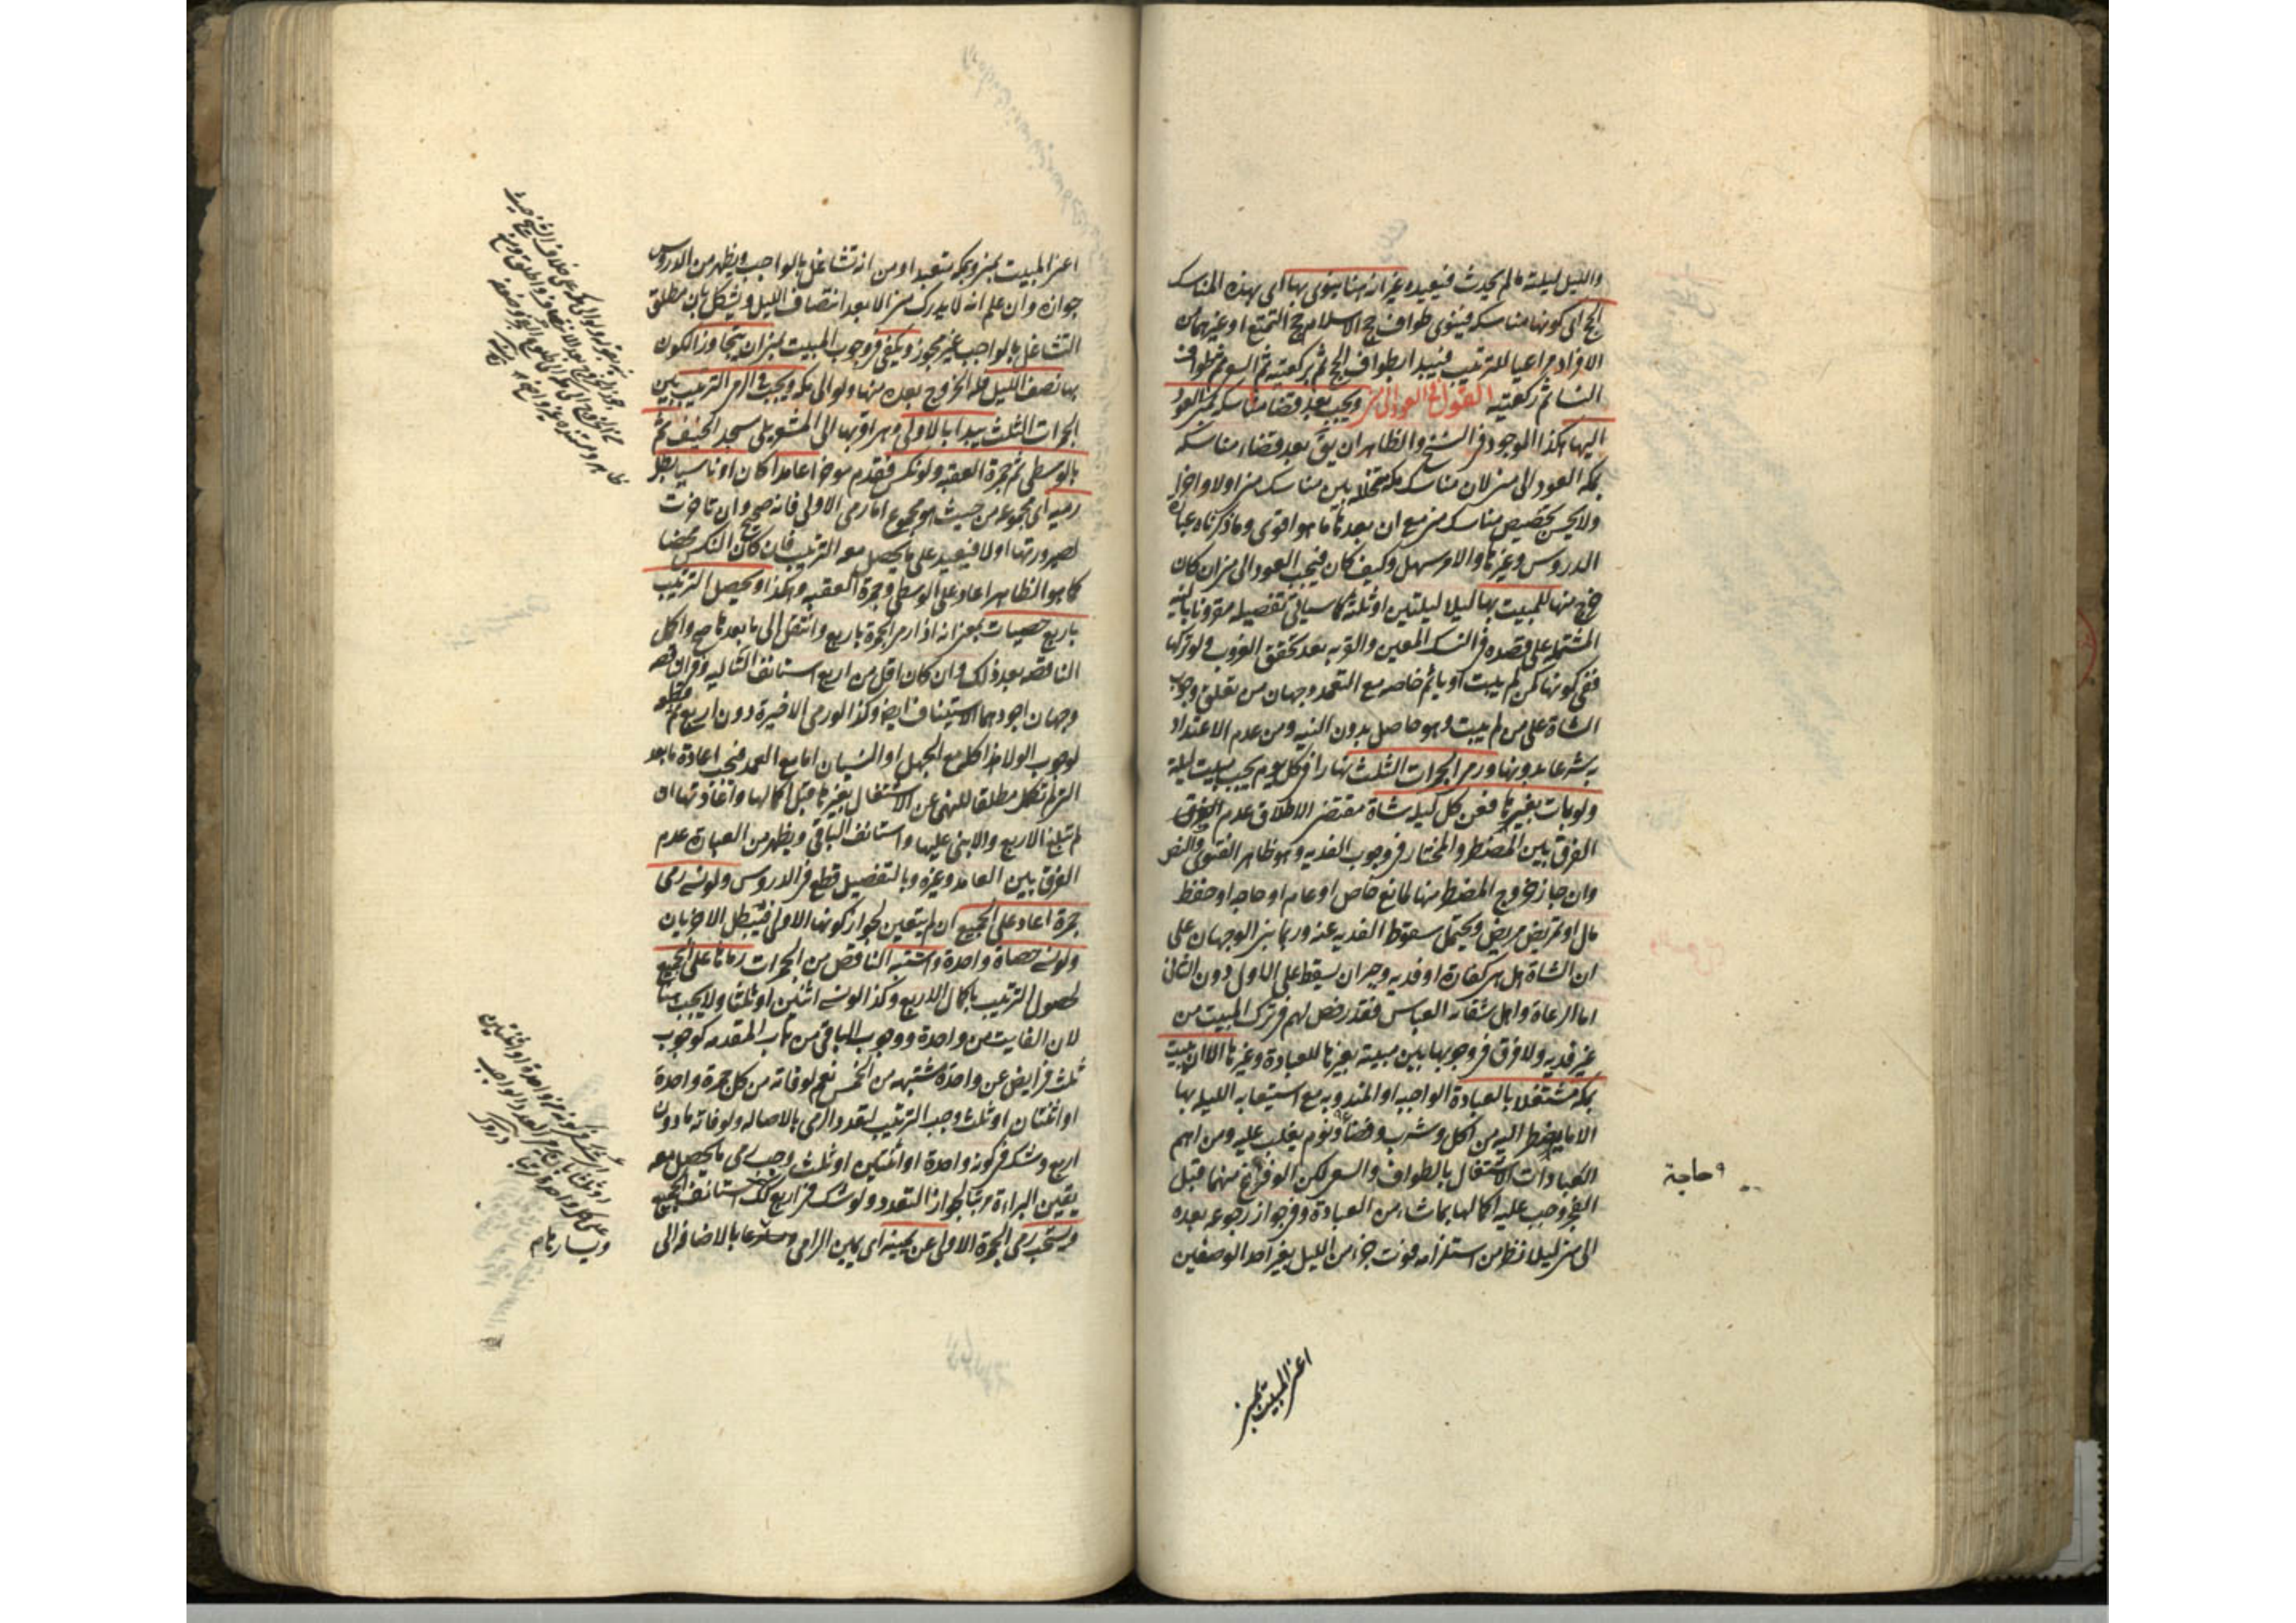 والليل ليلته ما لم يحدث فيعيده غير انه هنا ينوى بها اى بهذه المناسك
الحج اى كونها مناسكه فينوى طواف حج الاسلام حج التمتع او غيرهما من
الافراد مراعيا للترتيب فيبدا بطواف الحج ثم ركعتيه ثم السعى ثم طواف
النسا ثم ركعتيه القول فى العود الى منى ويجب بعد قضا مناسكه بمنى العود
اليها هكذا الموجود فى النسخ والظاهر ان يق بعد قضاء مناسكه
بمكه العود الى منى لان مناسك مكه متخلله بين مناسك منى اولا واخرا
ولا يحسن تخصيص مناسك منى مع ان بعدها ما هو اقوى وما ذكرناه عبارة
الدروس وغيرها والامر سهل وكيف كان فيجب العود الى منى ان كان
خرج منها للمبيت بها ليلا ليلتين او ثلثة كما سياتى تفصيله مقرونا بالنيه
المشتملة على قصده فى النسك المعين والقربه بعد تحقق الغروب ولو تركها
ففى كونها كمن لم يبت او ياثم خاصه مع التعمد وجهان من تعليق وجوب
الشاة على من لم يبت وهو حاصل بدون النيه ومن عدم الاعتداد
به شرعا بدونها ورمى الجمرات الثلث نهارا فى كل يوم يجب مبيت ليلته
ولو بات بغيرها فعن كل ليله شاة مقتضى الاطلاق عدم الفرق
الفرق بين المضطر والمختار فى وجوب الفديه وهو ظاهر الفتوى والنص
وان جاز خروج المضطر منها لمانع خاص او عام او حاجه او حفظ
مال او تمريض مريض ويحتمل سقوط الفديه عنه وربما بنى الوجهان على
ان الشاة هل هى كفارة او فديه وجبران يسقط على الاول دون الثانى
اما الرعاة واهل سقايه العباس فقد رخص لهم فى ترك المبيت من
غير فديه ولا فرق فى وجوبها بين مبيته بغيرها للعبادة وغيرها الا ان يبيت
بمكه مشتغلا بالعبادة الواجبه او المندوبه مع استيعابه الليله بها
الا ما يضطر اليه من اكل وشرب وقضا ونوم يغلب عليه ومن اهم
العبادات الاشتغال بالطواف والسعى لكن لو فرغ منهما قبل
الفجر وجب عليه اكمالها بما شاء من العبادة وفى جواز رجوعه بعده
الى منى ليلا نظر من استلزامه فوت جزء من الليل بغير احد الوصفين
حاجة
اعنى المبيت بمنى
اعنى المبيت بمنى وبمكه متعبدا ومن انه تشاغل بالواجب ويظهر من الدروس
جوازه وان علم انه لا يدرك منى الا بعد انتصاف الليل ويشكل بان مطلق
التشاغل بالواجب غير مجوز ويكفى فى وجوب المبيت بمنى ان يتجاوز الكون
بها نصف الليل فله الخروج بعده منها ولو الى مكه ويجب فى الرمى الترتيب بين
الجمرات الثلث يبدا بالاولى وهى اقربها الى المشعر يلى مسجد الخيف ثم
بالوسطى ثم جمرة العقبه ولو نكس فقدم موخرا عامدا كان او ناسيا بطل
رميه اى مجموعه من حيث هو مجموع اما رمى الاولى فانه صحيح وان تاخرت
لصيرورتها اولا فيعيد على ما يحصل معه الترتيب فان كان النكس محضا
كما هو الظاهر اعاد على الوسطى وجمرة العقبه وهكذا ويحصل الترتيب
باربع حصيات بمعنى انه اذا رمى الجمرة باربع وانتقل الى ما بعدها صح واكمل
الناقصه بعد ذلك وان كان اقل من اربع استانف التاليه وفى الناقصه
وجهان اجودهما الاستيناف ايض وكذا لو رمى الاخيرة دون اربع ثم قطعه
لوجوب الولا هذا كله مع الجهل او النسيان اما مع العمد فيجب اعادة ما بعد
التى لم تكمل مطلقا للنهى عن الاشتغال بغيرها قبل اكمالها واعادتها ان
لم تبلغ الاربع والا بنى عليها واستانف الباقى ويظهر من العبارة عدم
الفرق بين العامد وغيره وبالتفصيل قطع فى الدروس ولو نسى رمى
جمرة اعاد على الجميع ان لم يتعين لجواز كونها الاولى فيبطل الاخريان
ولو نسى حصاة واحدة واشتبه الناقص من الجمرات رماها على الجميع
لحصول الترتيب باكمال الاربع وكذا لو نسى اثنين او ثلثا ولا يجب هنا
لان الفايت من واحدة ووجوب الباقى من باب المقدمه كوجوب
ثلث فرايض عن واحدة مشتبهه من الخمس نعم لو فاته من كل جمرة واحدة
او اثنتان او ثلث وجب الترتيب لتعدد الرمى بالاصاله ولو فاته ما دون
اربع وشك فى كونه من واحدة او اثنتين او ثلث وجب رمى ما يحصل معه
يقين البراءة مرتبا لجواز التعدد ولو شك فى اربع كذلك استانف الجميع
ويستحب رمى الجمرة الاولى عن يمينه اى يمين الرامى ويسارها بالاضافه الى